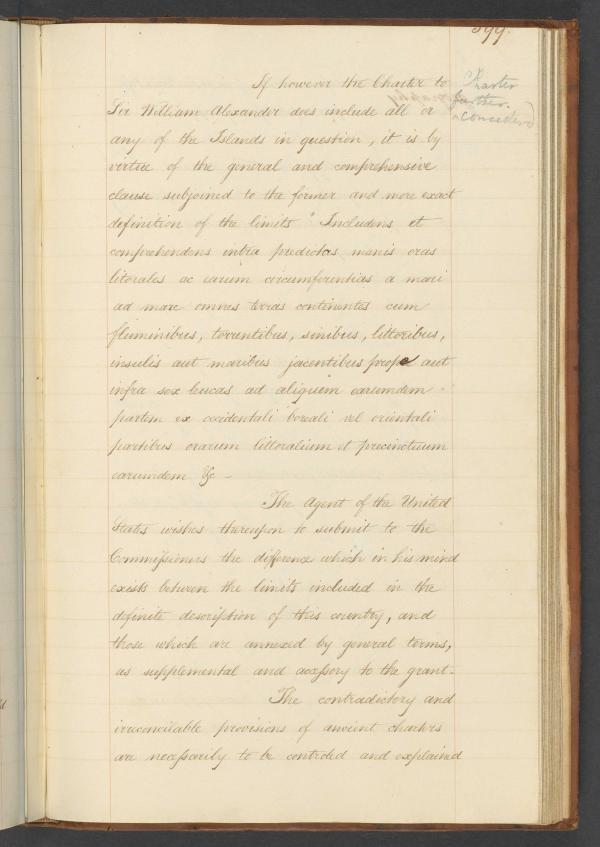 399.
Charter
further
considered
If however the Charter to
Sir William Alexander does include all or
any of the Islands in question, it is by
virtue of the general and comprehensive
clause subjoined to the former and more exact
definition of the limits "Includens et
comprehendens intra predictas maris oras
litorales ac earum circumferentias a mari
ad mare omnes terras continentes cum
fluminibus, torrentibus, sinibus, littoribus,
insulis aut maribus jacentibus prope aut
infra sex leucas ad aliquem earumdem
partem ex occidentali boreali vel orientali
partibus orarum littoralium et precinctuum
earumdem &c -
The Agent of the United
States wishes thereupon to submit to the
Commissioners the difference which in his mind
exists between the limits included in the
definite description of this country, and
those which are annexed by general terms,
as supplemental and accessory to the grant.
The contradictory and
irreconcilable provisions of ancient charters
are necessarily to be controled and explained